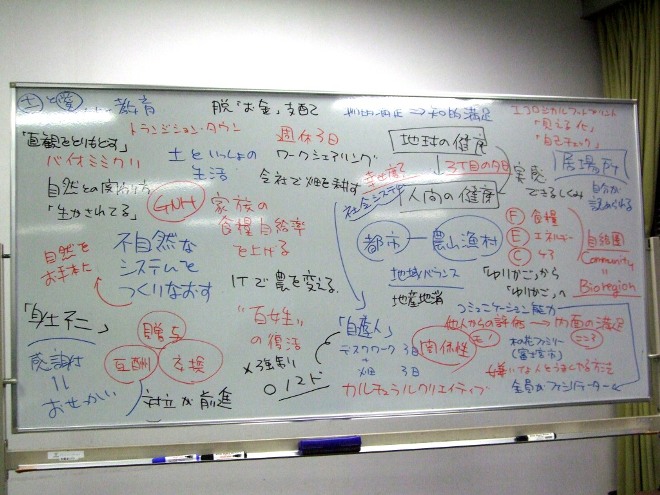 土と愛
教育
脱「お金」支配
知的満足
エコロジカルフットプリント
「見える化」
「自己チェック」
トランジション・タウン
「直観をとりもどす」
バイオミミクリ
土といっしょの
生活
週休3日
ワークシェアリング
会社で畑を耕す
地球の健康
3丁目の夕日
人間の健康
幸せ度
社会システム
実感
できるしくみ
居場所
自分が
認められる
自然との関わり方
「生かされてる」
GNH
家族の
食糧自給率
を上げる
自然を
お手本に
不自然な
システムを
つくりなおす
ITで農を変える
都市ー農山漁村
地域バランス
地産地消
F 食糧
E エネルギー
C ケア
自給圏
Community
=
Bioregion
「ゆりかご」から
「ゆりかご」へ
「身土不二」
感謝
=
おせっかい
贈与
互酬
交換
対立が前進
"百姓"
の復活
「自産人」
デスクワーク 3日
+
畑 3日
カルチュラルクリエイティブ
コミュニケーション能力
他人からの評価→内面の満足
関係性
木の花ファミリー
(富士宮市)
嫌いな人とうまくやる方法
全員がファシリテーター